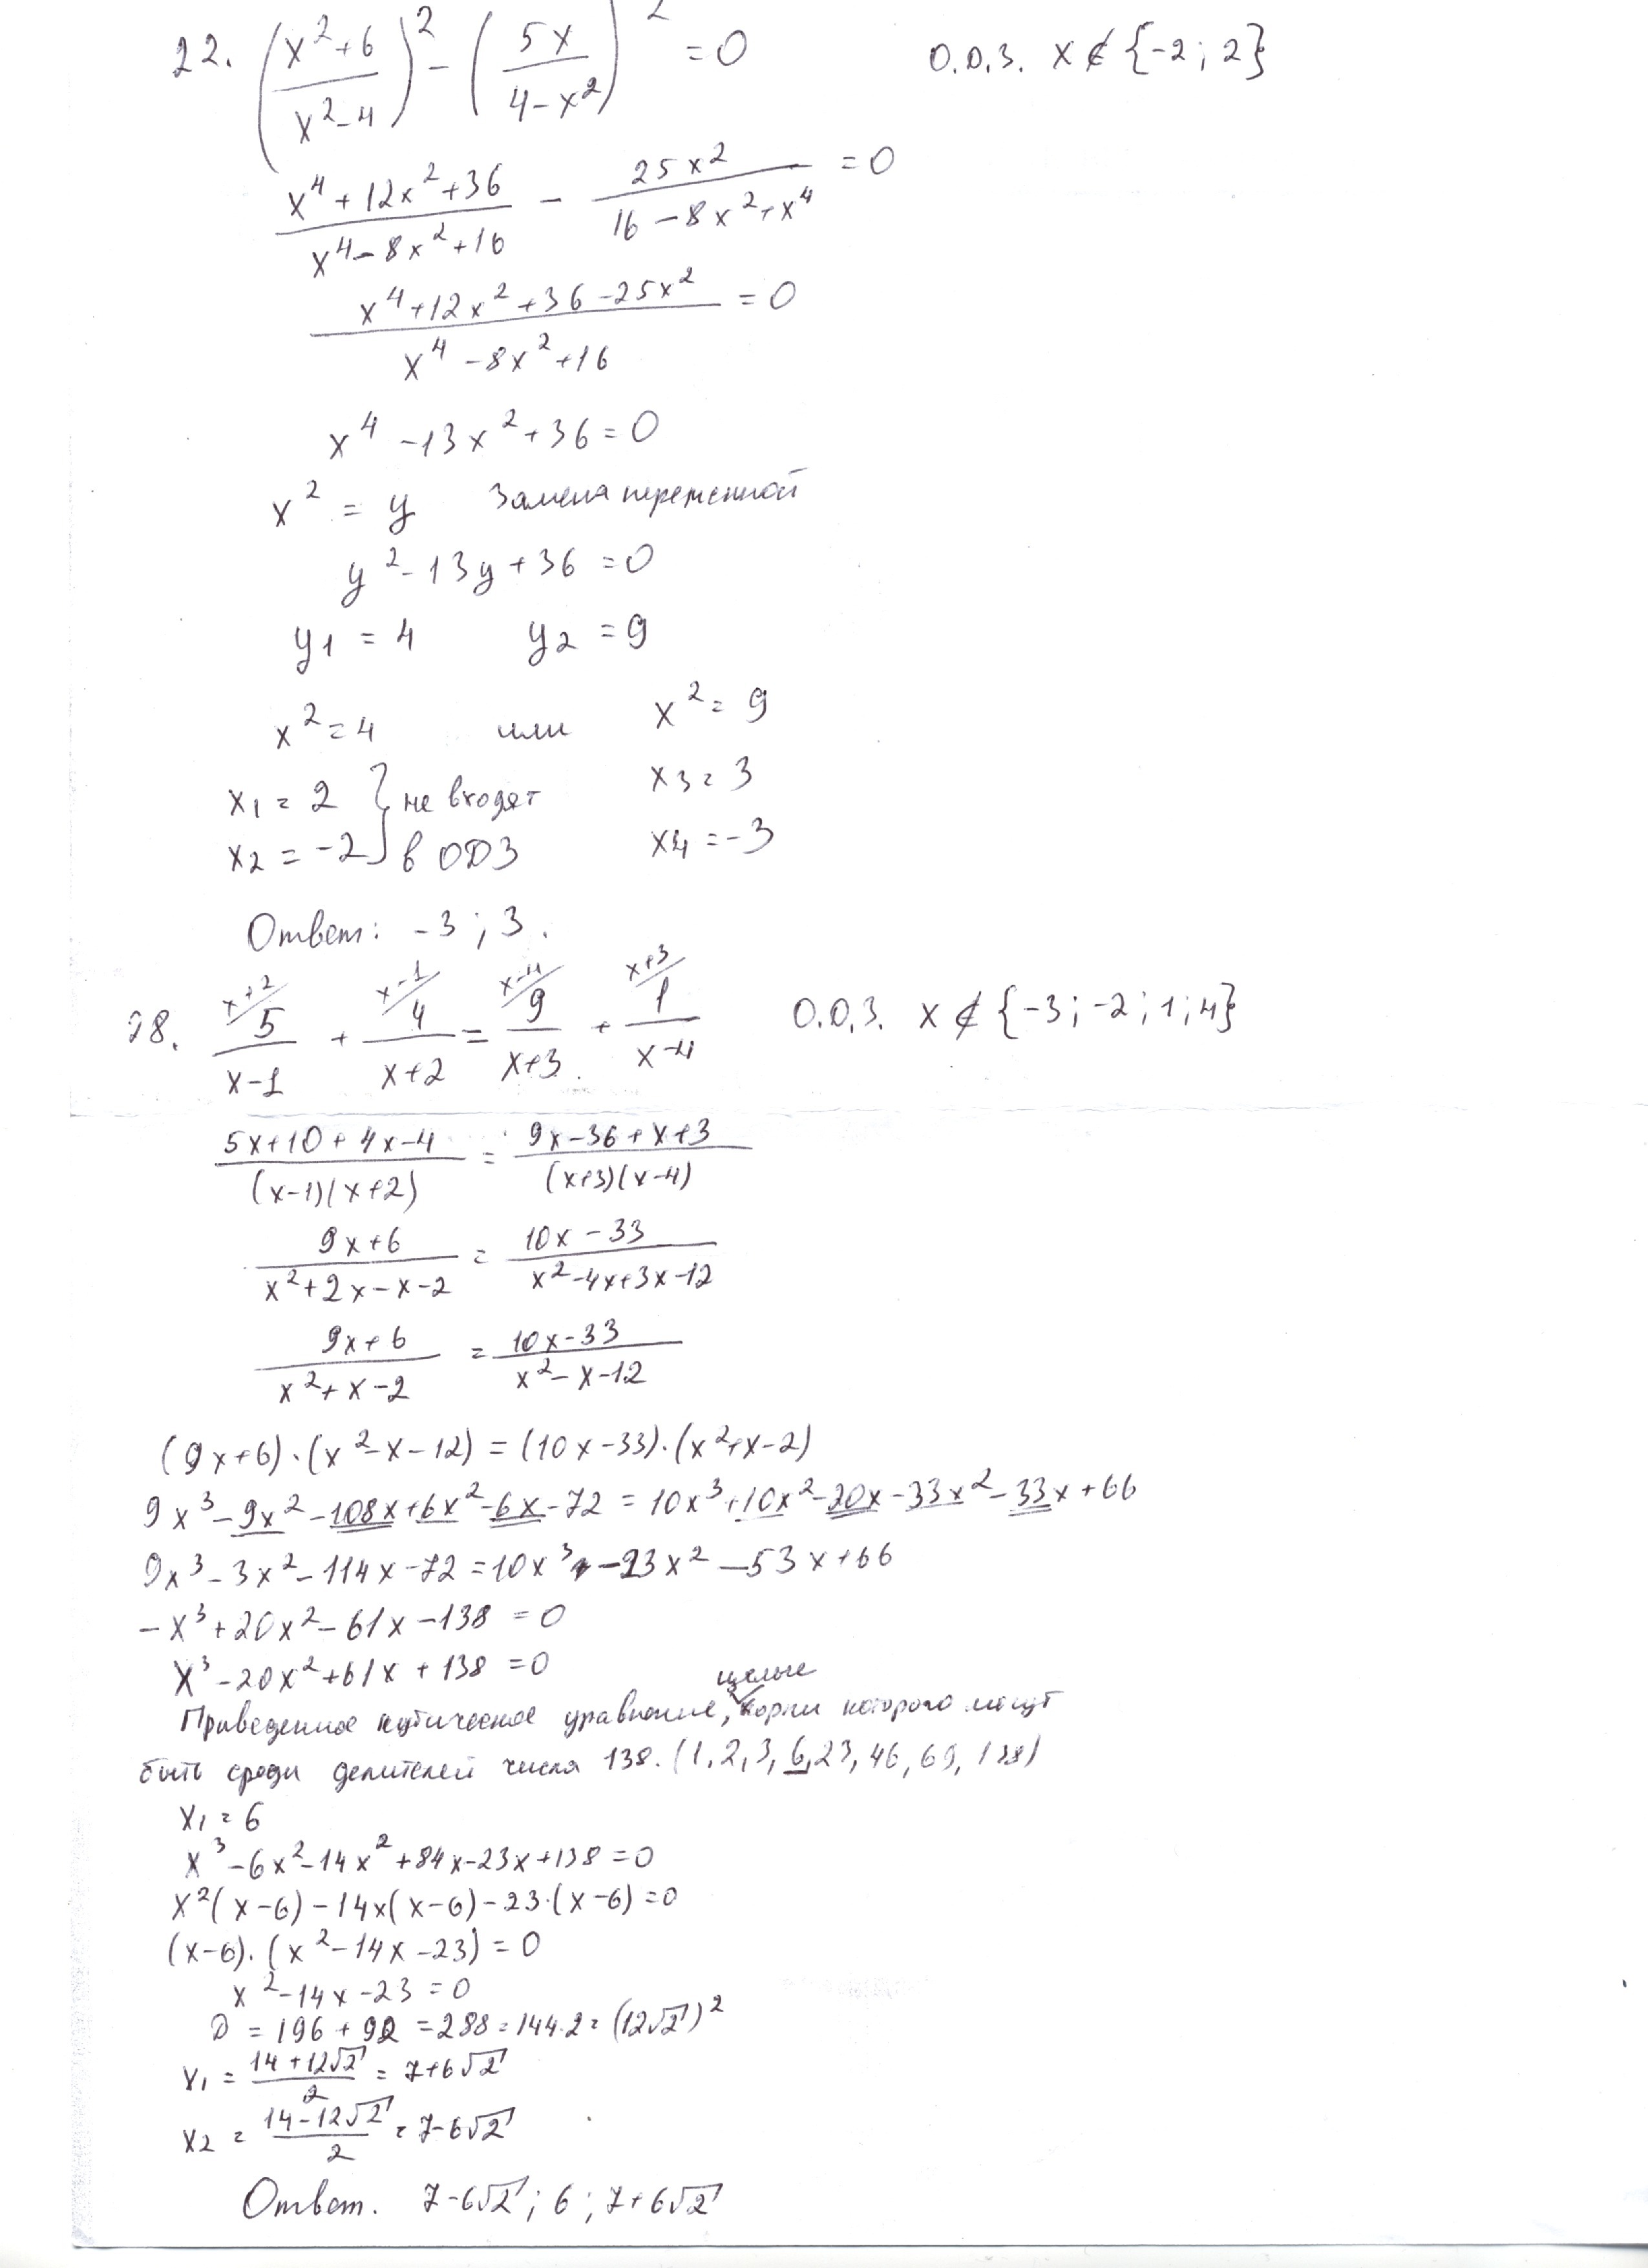 22. ((x²+6)/(x²-4))² - (5x/(4-x²))² = 0 О.О.З. x ∉ {-2; 2}
(x⁴+12x²+36)/(x⁴-8x²+16) - 25x²/(16-8x²+x⁴) = 0
(x⁴+12x²+36-25x²)/(x⁴-8x²+16) = 0
x⁴-13x²+36=0
x² = y Замена переменной
y²-13y+36=0
y1 = 4 y2 = 9
x²=4 или x²=9
x1=2 } не входят x3=3
x2=-2 } в ОДЗ x4=-3
Ответ: -3; 3.
x+2/ x-1/ x-4/ x+3/
28. 5/(x-1) + 4/(x+2) = 9/(x+3) + 1/(x-4) О.О.З. x ∉ {-3; -2; 1; 4}
(5x+10+4x-4)/((x-1)(x+2)) = (9x-36+x+3)/((x+3)(x-4))
(9x+6)/(x²+2x-x-2) = (10x-33)/(x²-4x+3x-12)
(9x+6)/(x²+x-2) = (10x-33)/(x²-x-12)
(9x+6)·(x²-x-12)=(10x-33)·(x²+x-2)
9x³-9x²-108x+6x²-6x-72=10x³+10x²-20x-33x²-33x+66
9x³-3x²-114x-72=10x³-23x²-53x+66
-x³+20x²-61x-138=0
x³-20x²+61x+138=0
Приведенное кубическое уравнение, целые корни которого могут
быть среди делителей числа 138. (1,2,3,6,23,46,69,138)
x1=6
x³-6x²-14x²+84x-23x+138=0
x²(x-6)-14x(x-6)-23·(x-6)=0
(x-6)·(x²-14x-23)=0
x²-14x-23=0
D=196+92=288=144·2=(12√2)²
x1=(14+12√2)/2=7+6√2
x2=(14-12√2)/2=7-6√2
Ответ. 7-6√2; 6; 7+6√2